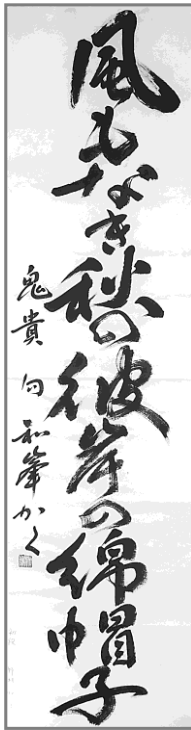 風もなき秋の彼岸の綿帽子
鬼貴 句 和峯かく